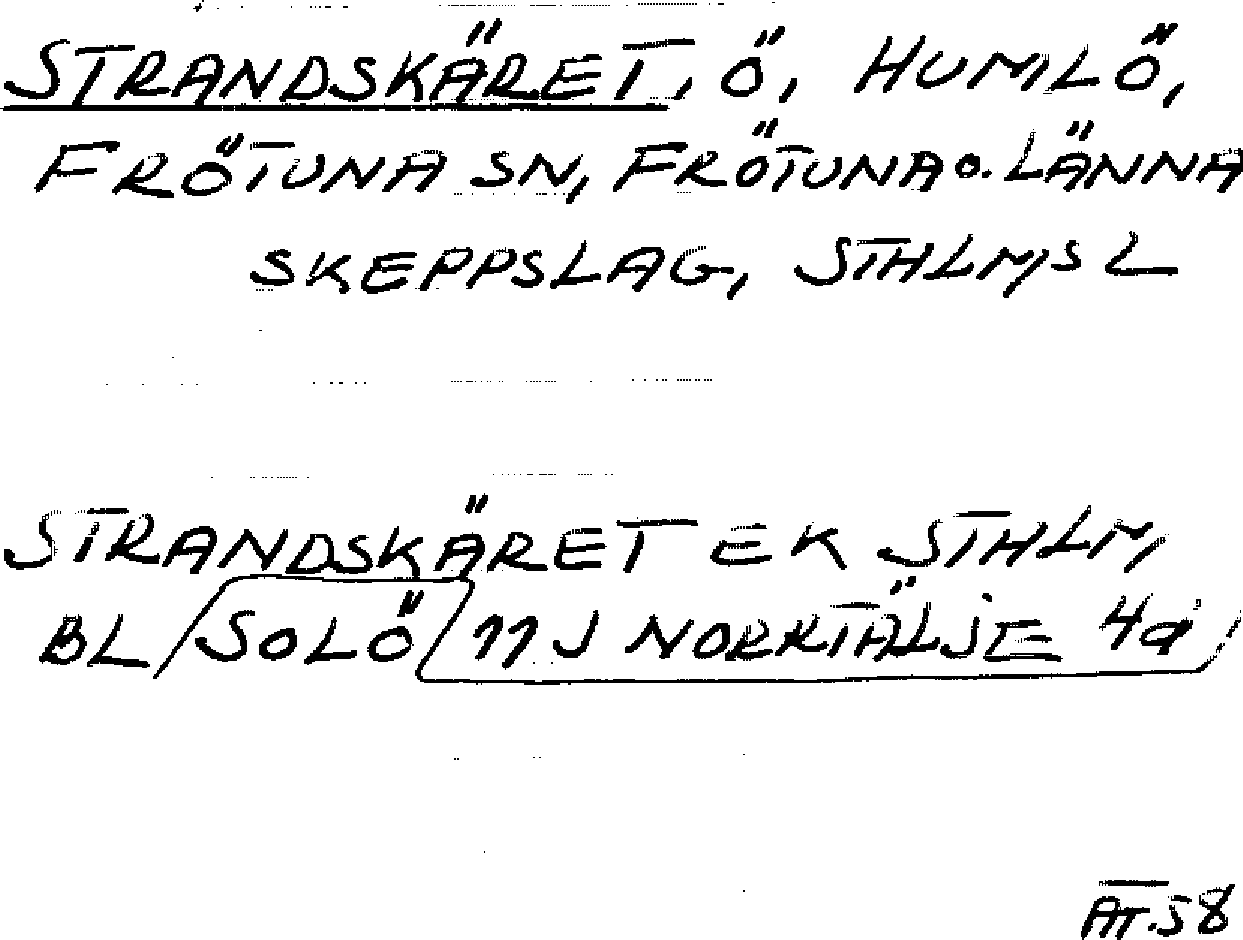 STRANDSKÄRET, Ö, HUMLÖ,
FRÖTUNA SN, FRÖTUNA O. LÄNNA
SKEPPSLAG, STHLMS L
STRANDSKÄRET EK STHLM,
BL/SOLÖ/11J NORRTÄLJE 4a
AT.58